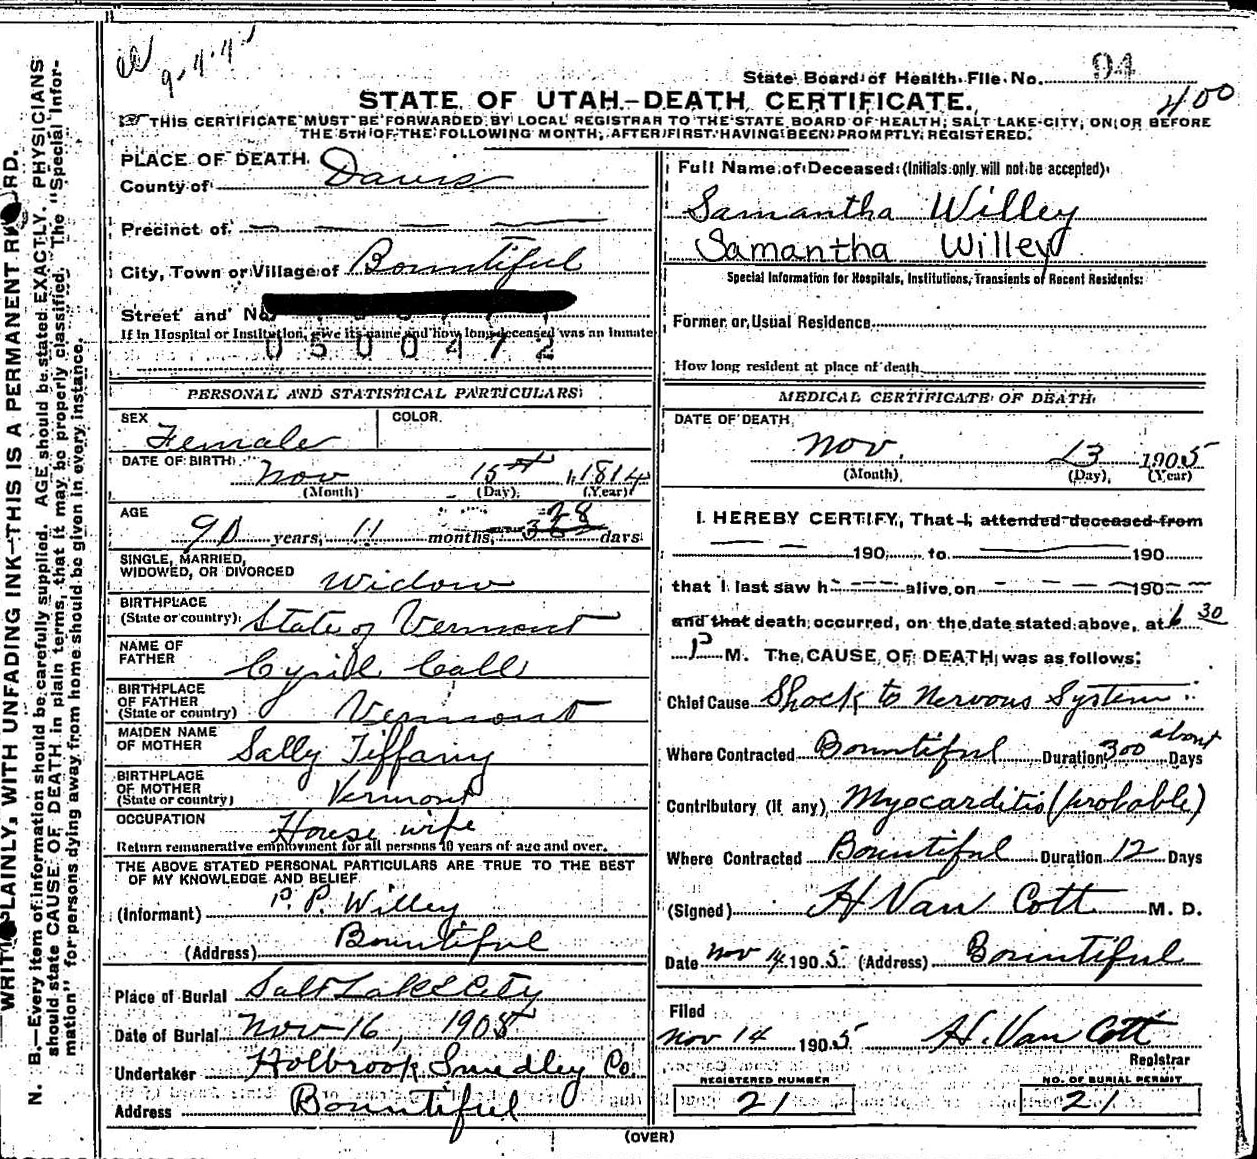 9-4-4
State Board of Health File No. 94
400
STATE OF UTAH—DEATH CERTIFICATE.
THIS CERTIFICATE MUST BE FORWARDED BY LOCAL REGISTRAR TO THE STATE BOARD OF HEALTH, SALT LAKE CITY, ON OR BEFORE
THE 5TH OF THE FOLLOWING MONTH, AFTER FIRST HAVING BEEN PROMPTLY REGISTERED.
WRITE PLAINLY, WITH UNFADING INK—THIS IS A PERMANENT RECORD.
N. B.—Every item of information should be carefully supplied. AGE should be stated EXACTLY. PHYSICIANS
should state CAUSE OF DEATH in plain terms, that it may be properly classified. The "Special Infor-
mation" for persons dying away from home should be given in every instance.
PLACE OF DEATH
County of Davis
Precinct of
City, Town or Village of Bountiful
Street and No.
If in Hospital or Institution, give its name and how long deceased was an inmate
0500472
PERSONAL AND STATISTICAL PARTICULARS
SEX
Female
COLOR
DATE OF BIRTH
Nov 15th 1814
(Month) (Day) (Year)
AGE
28
90 years, 11 months, days
SINGLE, MARRIED,
WIDOWED, OR DIVORCED Widow
BIRTHPLACE
(State or country) State of Vermont
NAME OF
FATHER Cyril Call
BIRTHPLACE
OF FATHER
(State or country) Vermont
MAIDEN NAME
OF MOTHER Sally Tiffany
BIRTHPLACE
OF MOTHER
(State or country) Vermont
OCCUPATION
House wife
Return remunerative employment for all persons 10 years of age and over.
THE ABOVE STATED PERSONAL PARTICULARS ARE TRUE TO THE BEST
OF MY KNOWLEDGE AND BELIEF
(Informant) P. P. Willey
(Address) Bountiful
Place of Burial Salt Lake City
Date of Burial Nov 16, 1905
Undertaker Holbrook Smedley Co.
Address Bountiful
Full Name of Deceased (Initials only will not be accepted)
Samantha Willey
Samantha Willey
Special Information for Hospitals, Institutions, Transients or Recent Residents:
Former or Usual Residence
How long resident at place of death
MEDICAL CERTIFICATE OF DEATH
DATE OF DEATH
Nov. 13 1905
(Month) (Day) (Year)
I HEREBY CERTIFY, That I, attended deceased from
190 to 190
that I last saw h alive on 190
and that death occurred, on the date stated above, at 6 30
P M. The CAUSE OF DEATH was as follows:
Chief Cause Shock to Nervous System
about
Where Contracted Bountiful Duration 300 Days
Contributory (if any) Myocarditis (probable)
Where Contracted Bountiful Duration 12 Days
(Signed) H Van Cott M. D.
Date Nov 14 1905 (Address) Bountiful
Filed
Nov 14 1905 H. Van Cott
Registrar
REGISTERED NUMBER
21
NO. OF BURIAL PERMIT
21
(OVER)